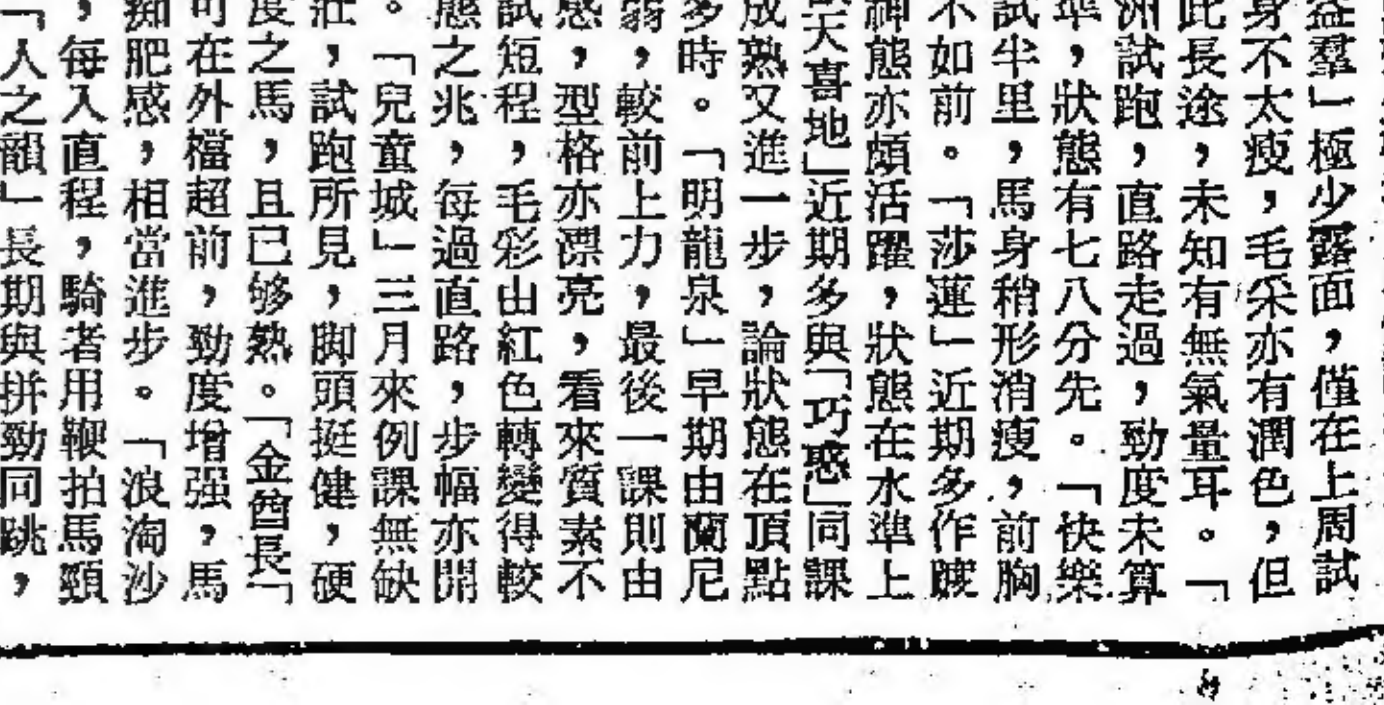 益羣」極少露面,僅在上周試
身不太瘦,毛采亦有潤色,但
此長途,未知有無氣量耳。「
洲試跑,直路走過,勁度未算
準,狀態有七八分先。「快樂
試半里,馬身稍形消瘦,前胸
不如前。「莎蓮」近期多作踱
神態亦頗活躍,狀態在水準上
天喜地」近期多與「巧惑」同課
成熟又進一步,論狀態在頂點
多時。「明龍泉」早期由蘭尼
弱,較前上力,最後一課則由
感,型格亦漂亮,看來質素不
試短程,毛彩由紅色轉變得較
態之兆,每過直路,步幅亦開
。「兒童城」三月來例課無缺
壯,試跑所見,脚頭挺健,硬
度之馬,且已够熟。「金酋長「
可在外檔超前,勁度增强,馬
痴肥感,相當進步。「浪淘沙
,每入直程,騎者用鞭拍馬頸
「人之韻」長期與拼勁同跳,